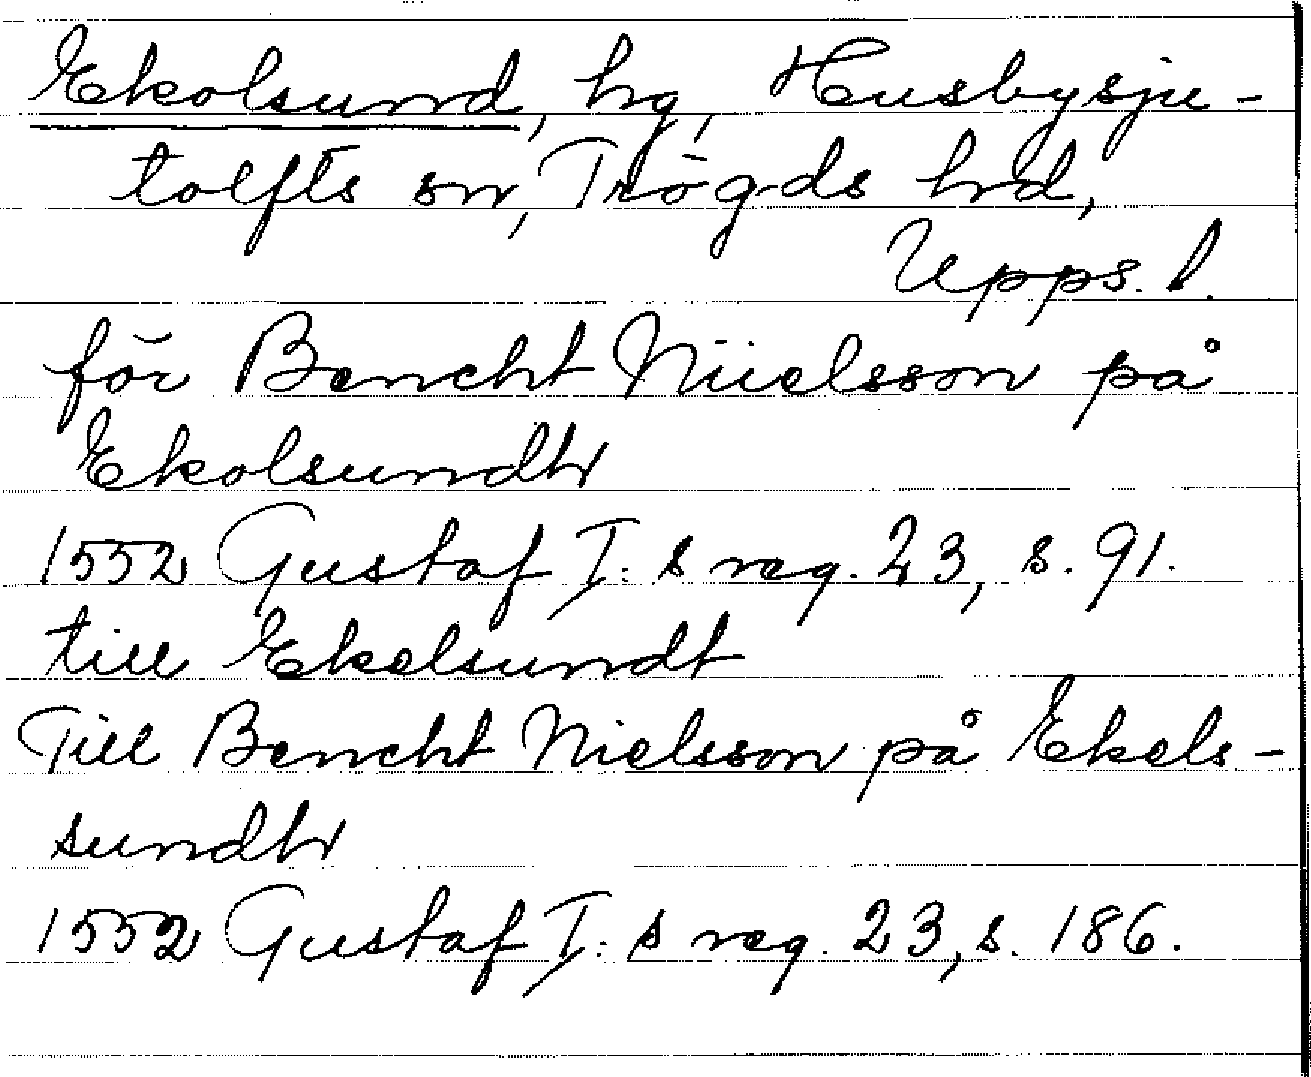 Ekolsund, hg, Husbysju-
tolfts sn, Trögds hd,
Upps. l.
för Bencht Nüelsson på
Ekolsundh
1552 Gustaf I: s reg. 23, s. 91.
till Ekelsundt
Till Bencht Nielsson på Ekels-
sundh
1552 Gustaf I: s reg. 23, s. 186.